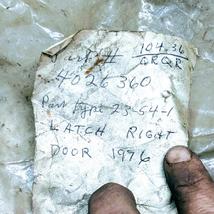 Part # 104.36
GRQR
4026360
Part type 23-54-1
LATCH RIGHT
DOOR 1976